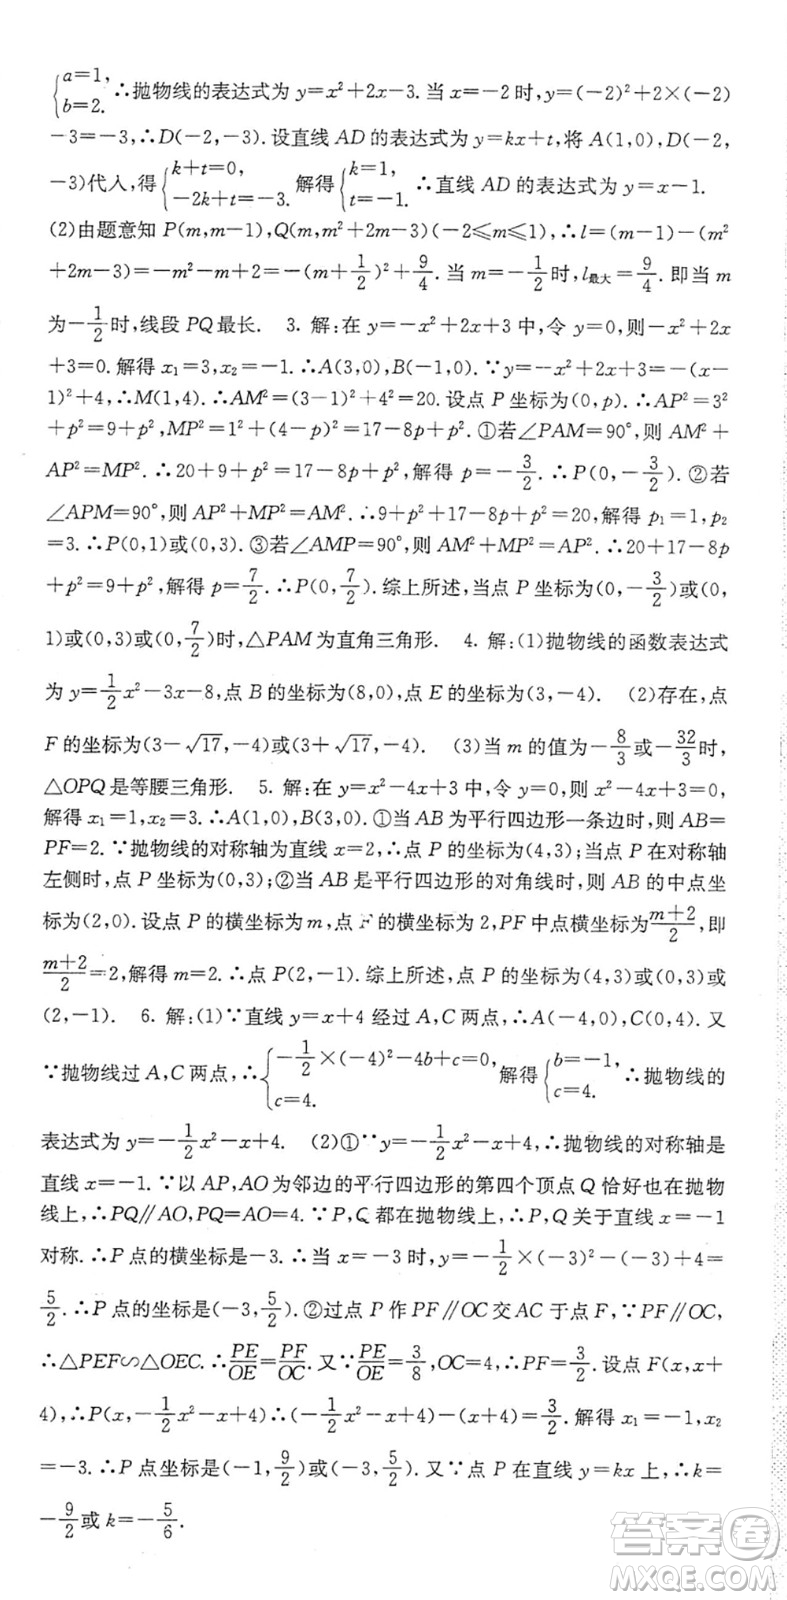 {a=1, b=2. ∴抛物线的表达式为 y=x²+2x-3. 当 x=-2 时, y=(-2)²+2×(-2)
-3=-3, ∴D(-2,-3). 设直线 AD 的表达式为 y=kx+t, 将 A(1,0), D(-2,
-3)代入, 得{k+t=0, -2k+t=-3. 解得{k=1, t=-1. ∴直线 AD 的表达式为 y=x-1.
(2)由题意知 P(m,m-1), Q(m,m²+2m-3)(-2≤m≤1), ∴l=(m-1)-(m²
+2m-3)=-m²-m+2=-(m+1/2)²+9/4. 当 m=-1/2时, l最大=9/4. 即当 m
为-1/2时, 线段 PQ 最长. 3. 解:在 y=-x²+2x+3 中, 令 y=0, 则-x²+2x
+3=0. 解得 x₁=3, x₂=-1. ∴A(3,0), B(-1,0). ∵y=-x²+2x+3=-(x-
1)²+4, ∴M(1,4). ∴AM²=(3-1)²+4²=20. 设点 P 坐标为(0,p). ∴AP²=3²
+p²=9+p², MP²=1²+(4-p)²=17-8p+p². ①若∠PAM=90°, 则 AM²+
AP²=MP². ∴20+9+p²=17-8p+p², 解得 p=-3/2. ∴P(0,-3/2). ②若
∠APM=90°, 则 AP²+MP²=AM². ∴9+p²+17-8p+p²=20, 解得 p₁=1, p₂
=3. ∴P(0,1)或(0,3). ③若∠AMP=90°, 则 AM²+MP²=AP². ∴20+17-8p
+p²=9+p², 解得 p=7/2. ∴P(0,7/2). 综上所述, 当点 P 坐标为(0,-3/2)或(0,
1)或(0,3)或(0,7/2)时, △PAM 为直角三角形. 4. 解:(1)抛物线的函数表达式
为 y=1/2x²-3x-8, 点 B 的坐标为(8,0), 点 E 的坐标为(3,-4). (2)存在, 点
F 的坐标为(3-√17,-4)或(3+√17,-4). (3)当 m 的值为-8/3或-32/3时,
△OPQ 是等腰三角形. 5. 解:在 y=x²-4x+3 中, 令 y=0, 则 x²-4x+3=0.
解得 x₁=1, x₂=3. ∴A(1,0), B(3,0). ①当 AB 为平行四边形一条边时, 则 AB=
PF=2. ∵抛物线的对称轴为直线 x=2, ∴点 P 的坐标为(4,3); 当点 P 在对称轴
左侧时, 点 P 的坐标为(0,3); ②当 AB 是平行四边形的对角线时, 则 AB 的中点坐
标为(2,0). 设点 P 的横坐标为 m, 点 F 的横坐标为 2, PF 中点横坐标为(m+2)/2, 即
(m+2)/2=2, 解得 m=2. ∴点 P(2,-1). 综上所述, 点 P 的坐标为(4,3)或(0,3)或
(2,-1). 6. 解:(1)∵直线 y=x+4 经过 A,C 两点, ∴A(-4,0), C(0,4). 又
∵抛物线过 A,C 两点, ∴{-1/2×(-4)²-4b+c=0, c=4. 解得{b=-1, c=4. ∴抛物线的
表达式为 y=-1/2x²-x+4. (2)①∵y=-1/2x²-x+4, ∴抛物线的对称轴是
直线 x=-1. ∵以 AP,AO 为邻边的平行四边形的第四个顶点 Q 恰好也在抛物
线上, ∴PQ∥AO, PQ=AO=4. ∵P,Q 都在抛物线上, ∴P,Q 关于直线 x=-1
对称. ∴P 点的横坐标是-3. ∴当 x=-3 时, y=-1/2×(-3)²-(-3)+4=
5/2. ∴P 点的坐标是(-3,5/2). ②过点 P 作 PF∥OC 交 AC 于点 F, ∵PF∥OC,
∴△PEF∽△OEC. ∴PE/OE=PF/OC. 又∵PE/OE=3/8, OC=4, ∴PF=3/2. 设点 F(x,x+
4), ∴P(x,-1/2x²-x+4)∴(-1/2x²-x+4)-(x+4)=3/2. 解得 x₁=-1, x₂
=-3. ∴P 点坐标是(-1,9/2)或(-3,5/2). 又∵点 P 在直线 y=kx 上, ∴k=
-9/2或 k=-5/6.
答案卷
MXQE.COM